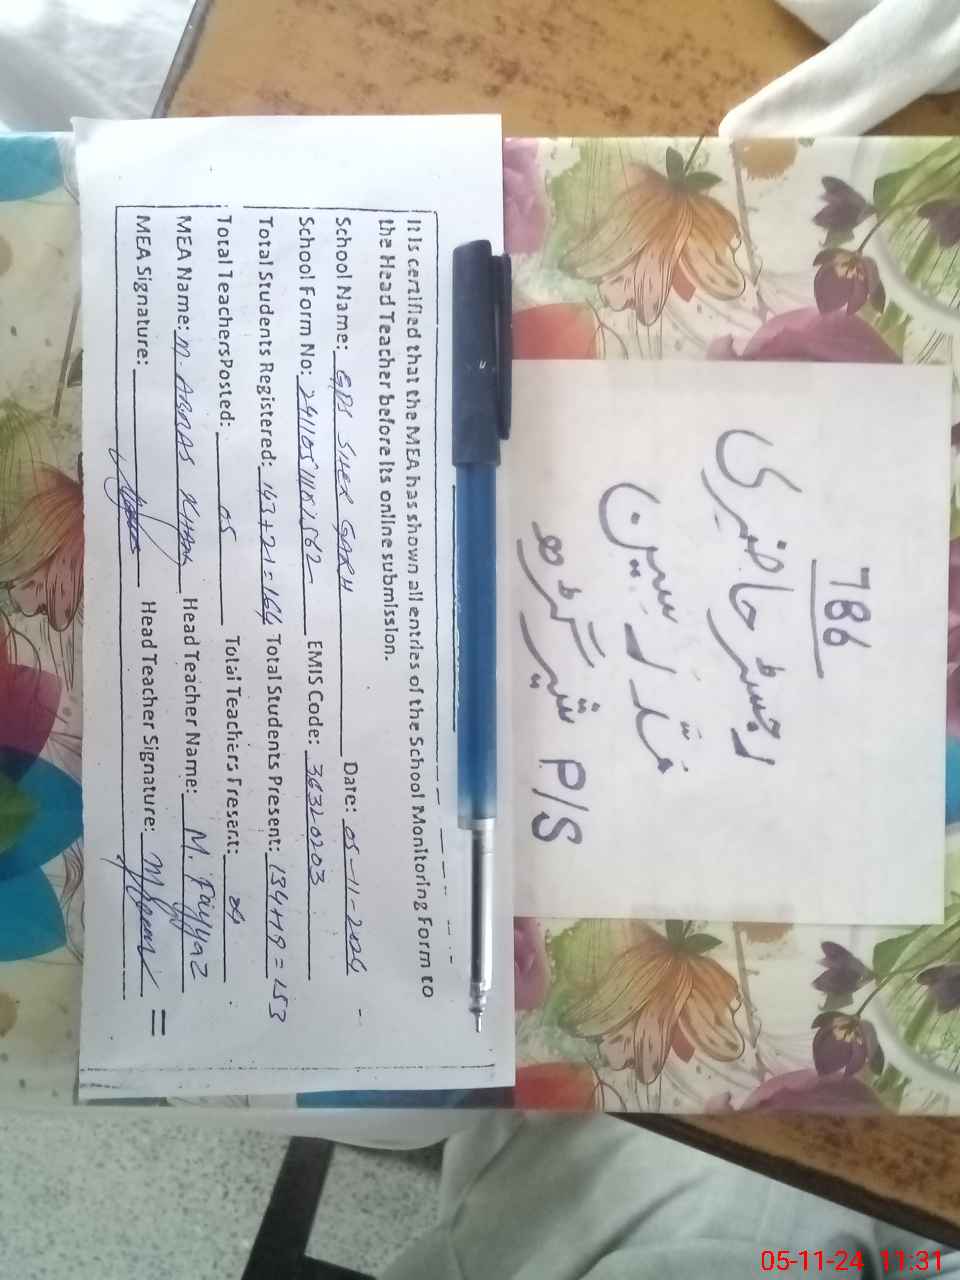 786
رجسٹر حاضری
مدرسین
P/S شیر گڑھ
It is certified that the MEA has shown all entries of the School Monitoring Form to
the Head Teacher before its online submission.
School Name: GPS SHER GARH Date: 05-11-204
School Form No: EMIS Code: 36320203
Total Students Registered: 143+21=164 Total Students Present: 134+19=153
Total Teachers Posted: 05 Total Teachers Present:
MEA Name: M. Head Teacher Name: M. Fayyaz
MEA Signature: Head Teacher Signature:
05-11-24 11:31